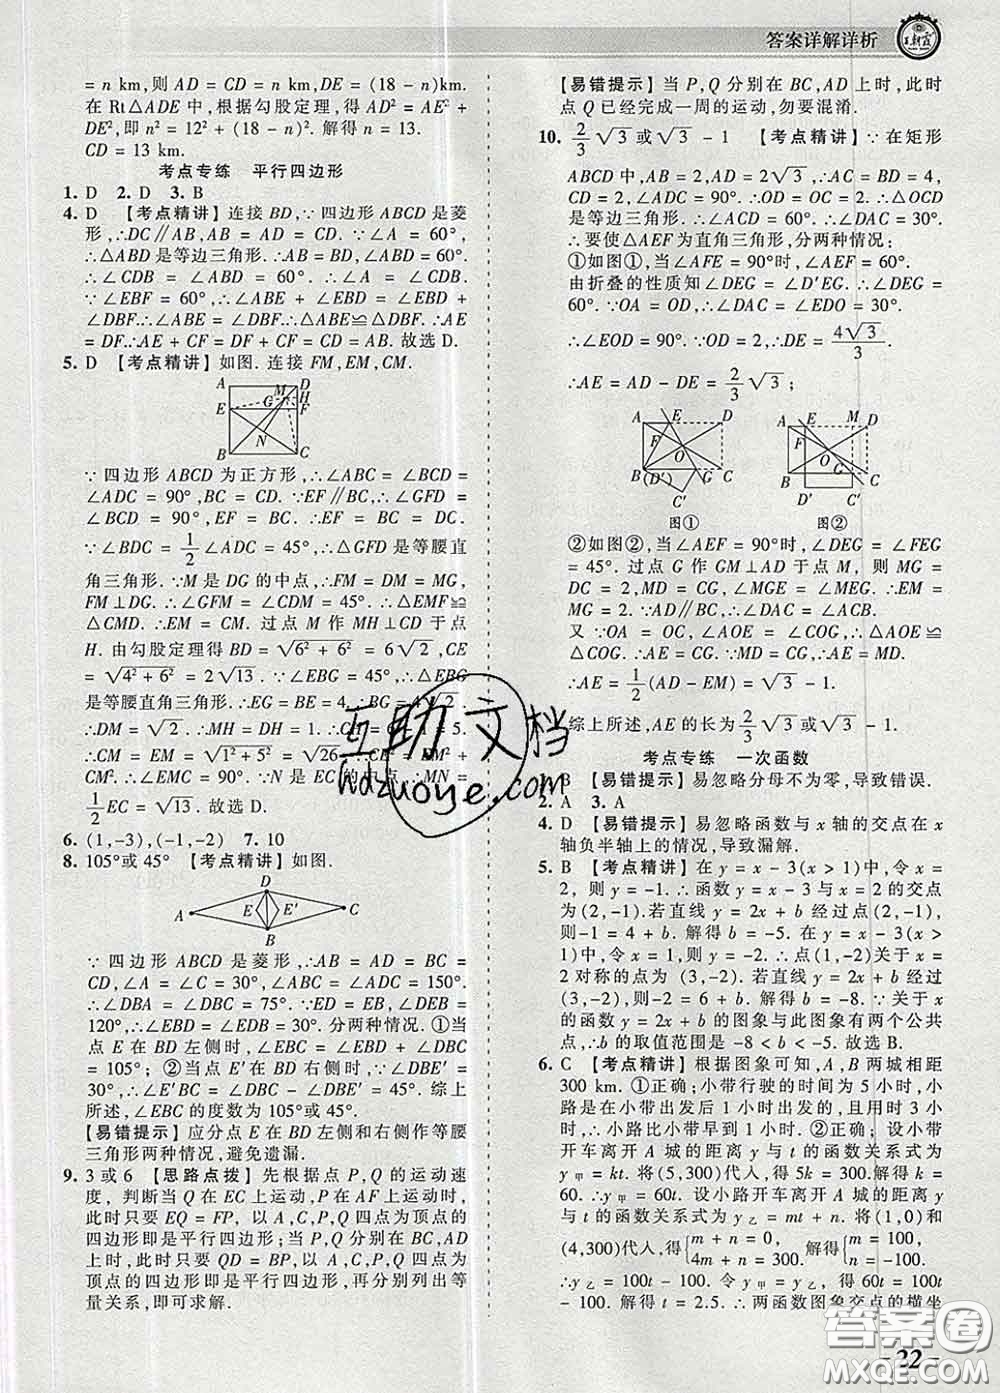 答案详解详析
王朝霞
= n km,则 AD = CD = n km,DE = (18 - n) km.
在 Rt△ADE 中,根据勾股定理,得 AD² = AE² +
DE²,即 n² = 12² + (18 - n)². 解得 n = 13.
CD = 13 km.
考点专练 平行四边形
1. D 2. D 3. B
4. D 【考点精讲】连接 BD,∵ 四边形 ABCD 是菱
形,∴DC∥AB,AB = AD = CD. ∵∠A = 60°,
∴△ABD 是等边三角形. ∴∠ABD = 60°.
∴ ∠CDB = ∠ABD = 60°. ∴ ∠A = ∠CDB.
∵ ∠EBF = 60°,∴ ∠ABE + ∠EBD = ∠EBD +
∠DBF.∴∠ABE = ∠DBF.∴△ABE≌△DBF.∴AE =
DF.∴AE + CF = DF + CF = CD = AB. 故选 D.
5. D 【考点精讲】如图. 连接 FM,EM,CM.
A D M H G E F N B C
∵ 四边形 ABCD 为正方形,∴∠ABC = ∠BCD =
∠ADC = 90°,BC = CD. ∵EF∥BC,∴∠GFD =
∠BCD = 90°,EF = BC. ∴ EF = BC = DC.
∵ ∠BDC = 1/2 ∠ADC = 45°,∴△GFD 是等腰直
角三角形. ∵M 是 DG 的中点,∴FM = DM = MG,
FM⊥DG. ∴∠GFM = ∠CDM = 45°. ∴△EMF≌
△CMD. ∴EM = CM. 过点 M 作 MH⊥CD 于点
H. 由勾股定理得 BD = √(6² + 6²) = 6√2,CE
= √(4² + 6²) = 2√13. ∵∠EBG = 45°,∴△EBG
是等腰直角三角形. ∴EG = BE = 4. ∴BG = 4√2.
∴DM = √2. ∴MH = DH = 1. ∴CH = 6 - 1 = 5.
∴CM = EM = √(1² + 5²) = √26. ∵CE² = EM² +
CM²,∴∠EMC = 90°. ∵N 是 EC 的中点,∴MN =
1/2 EC = √13. 故选 D.
6. (1,-3),(-1,-2) 7. 10
8. 105°或 45° 【考点精讲】如图.
D A E E′ C B
∵ 四边形 ABCD 是菱形,∴ AB = AD = BC =
CD,∠A = ∠C = 30°,∠ABC = ∠ADC = 150°.
∴ ∠DBA = ∠DBC = 75°. ∵ ED = EB,∠DEB =
120°,∴∠EBD = ∠EDB = 30°. 分两种情况. ①当
点 E 在 BD 左侧时,∠EBC = ∠EBD + ∠DBC =
105°; ②当点 E′在 BD 右侧时,∵∠DBE′ = 30°,
∴∠E′BC = ∠DBC - ∠DBE′ = 45°. 综上
所述,∠EBC 的度数为 105°或 45°.
【易错提示】应分点 E 在 BD 左侧和右侧作等腰
三角形两种情况,避免遗漏.
9. 3 或 6 【思路点拨】先根据点 P,Q 的运动速
度, 判断当 Q 在 EC 上运动,P 在 AF 上运动时,
此时只要 EQ = FP, 以 A,C,P,Q 四点为顶点的
四边形即是平行四边形;当 P,Q 分别在 BC,AD
上时,此时只要 QD = BP,以 A,C,P,Q 四点为
顶点的四边形即是平行四边形,再分别列出等
量关系,即可求解.
【易错提示】当 P,Q 分别在 BC,AD 上时,此时
点 Q 已经完成一周的运动,勿要混淆.
10. 2/3 √3 或√3 - 1 【考点精讲】∵ 在矩形
ABCD 中,AB = 2,AD = 2√3,∴AC = BD = 4,
∠ADC = 90°. ∴OD = OC = 2. ∴△OCD
是等边三角形. ∴∠DCA = 60°. ∴∠DAC = 30°.
∴ 要使△AEF 为直角三角形,分两种情况;
①如图①,当∠AFE = 90°时,∴∠AEF = 60°.
由折叠的性质知∠DEG = ∠D′EG. ∴∠DEG =
60°. ∵OA = OD,∴∠DAC = ∠EDO = 30°.
∴∠EOD = 90°. ∵DO = 2,∴DE = 4√3/3.
∴AE = AD - DE = 2/3 √3;
A E D F O B C (D′) G C′ 图①
A E M D F O B G C D′ C′ 图②
②如图②,当∠AEF = 90°时,∠DEG = ∠FEG
= 45°. 过点 G 作 GM⊥AD 于点 M, 则 MG =
DC = 2,∠MGE = ∠MEG = 45°. ∴EM = MG
= 2. ∵AD∥BC,∴∠DAC = ∠ACB.
又 ∵OA = OC,∠AOE = ∠COG,∴△AOE≌
△COG. ∴AE = CG. ∵MD = CG,∴AE = MD.
∴AE = 1/2 (AD - EM) = √3 - 1.
综上所述,AE 的长为 2/3 √3 或√3 - 1.
考点专练 一次函数
1. B 【易错提示】易忽略分母不为零,导致错误.
2. A 3. A
4. D 【易错提示】易忽略函数与 x 轴的交点在 x
轴负半轴上的情况,导致漏解.
5. B 【考点精讲】在 y = x - 3(x > 1)中,令 x =
2, 则 y = -1. ∴ 函数 y = x - 3 与 x = 2 的交点
为(2,-1).若直线 y = 2x + b 经过点(2,-1),
则-1 = 4 + b. 解得 b = -5. 在 y = x - 3(x >
1)中,令 x = 1, 则 y = -2. ∴ 点(1,-2)关于 x =
2 对称的点为 (3,-2). 若直线 y = 2x + b 经过
(3,-2),则-2 = 6 + b. 解得 b = -8. ∵ 关于 x
的函数 y = 2x + b 的图象与此图象有两个公共
点,∴b 的取值范围是 -8 < b < -5. 故选 B.
6. C 【考点精讲】根据图象可知,A,B 两城相距
300 km. ①正确;小带行驶的时间为 5 小时,小
路是在小带出发后 1 小时出发的,且用时 3 小
时,小路比小带早到 1 小时. ②正确. 设小带
开车离开 A 城的距离 y 与 t 的函数关系式为
y甲 = kt. 将(5,300)代入,得 300 = 5k. 解得 k =
60. ∴y甲 = 60t. 设小路开车离开 A 城的距离 y
与 t 的函数关系式为 y乙 = mt + n. 将(1,0)和
(4,300)代入,得{m + n = 0, 4m + n = 300. 解得{m = 100, n = -100.
∴y乙 = 100t - 100. 令 y甲 = y乙, 得 60t = 100t
- 100. 解得 t = 2.5. ∴ 两函数图象交点的横坐
- 22 -
互助文档
hdzuoye.com
答案圈
MXQE.COM